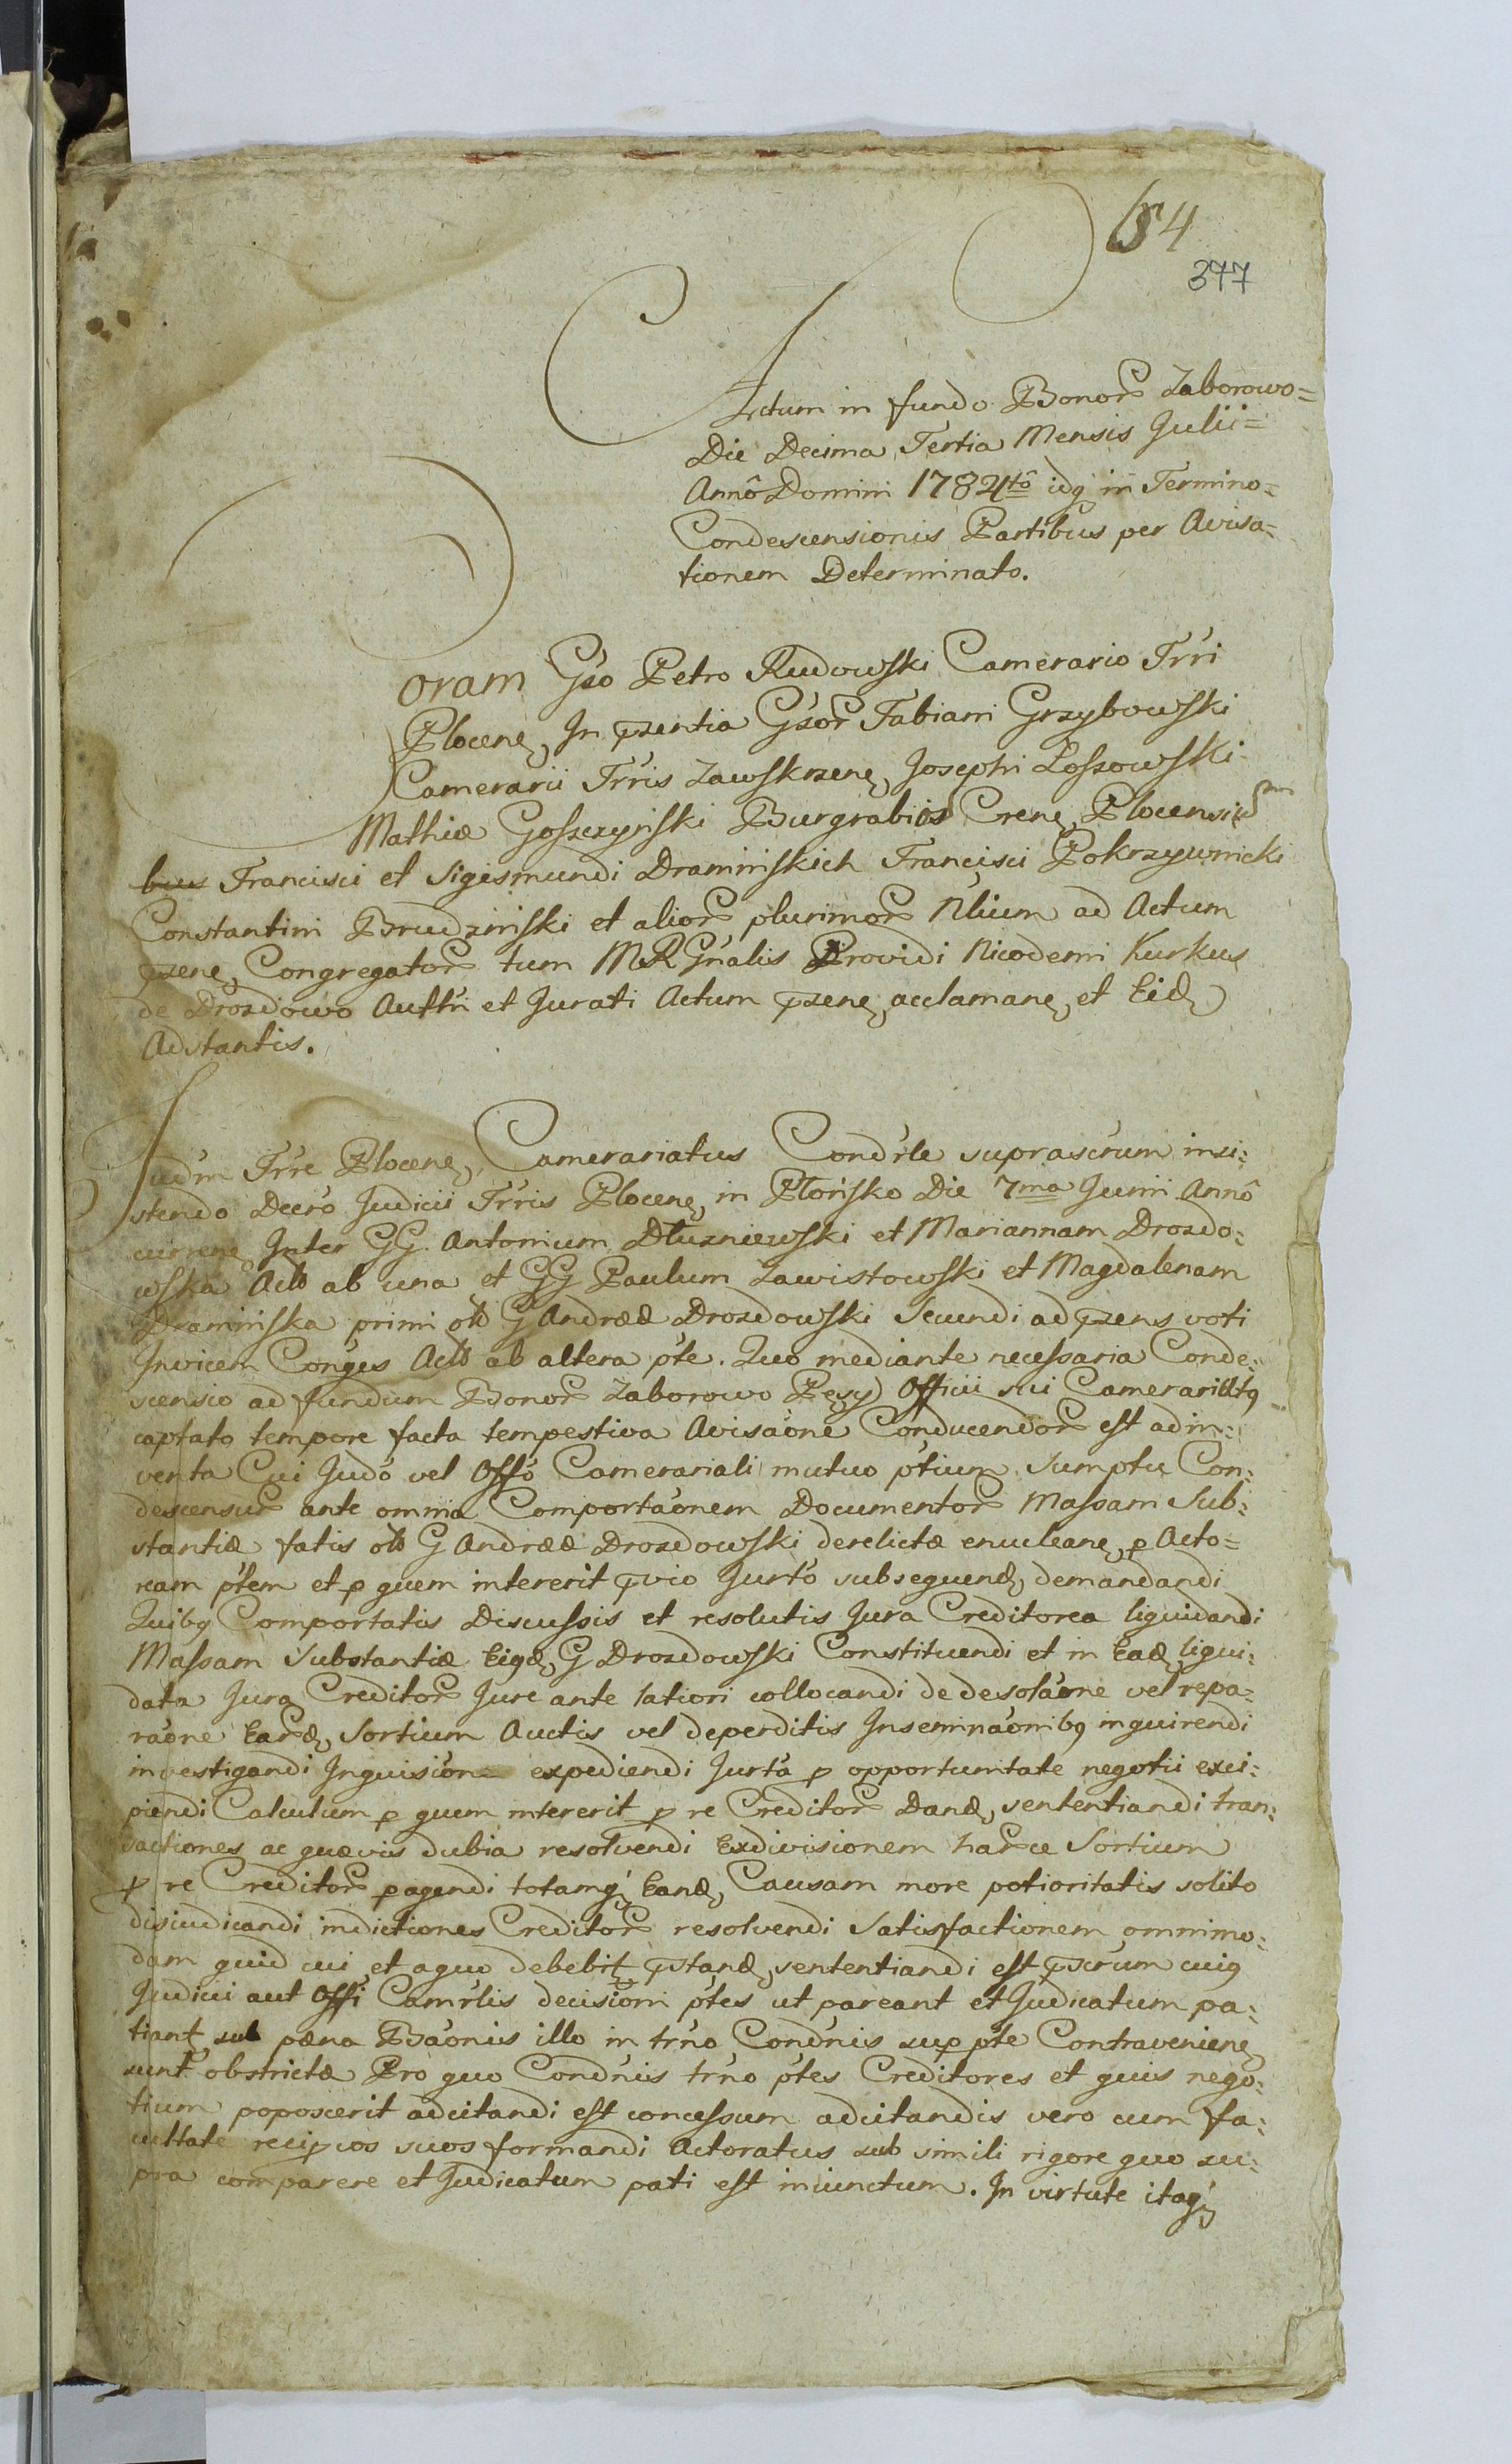 654
377
Actum in fundo Bonor Zaborowo=
Die Decima Tertia Mensis Julii=
Annô Domini 1784tô idq in Termino=
Condescensionis Partibus per Avisa=
tionem Determinato.
Coram Gso Petro Rudowski Camerario Trri
Plocene, In pzentia Gsor Fabiani Grzybowski
Camerarii Trris Zawskrzene, Josephi Lossowski
Mathiæ Goszczyński Burgrabios Crene Plocensi
Francisci et Sigismundi Dramińskich Francisci Pokrzywnicki
Constantini Brudziński et alior plurimor Nlium ad Actum
pzene, Congregator tum MR Gnalis Providi Nicodemi Kurkus
de Drozdowo Auttri et Jurati Actum pzene, acclamane, et Eid
Adstantis.
Judm Trre Plocene, Camerariatus Condrle suprascrum insi:
stendo Decro Judicii Trris Plocene, in Płońsko Die 7ma Junii Annô
currene Inter GG. Antonium Dłuzniewski et Mariannam Drozdo:
wska Acto ab una et GG Paulum Zawistowski et Magdalenam
Dramińska primi olo G Andreæ Drozdowski Secundi ad pzens voti
Invicem Conges Acto ab altera pte. Quo mediante necessaria Conde:
scensio ad fundum Bonor Zaborowo Pęsy Officii sui Camerariatq
captato tempore facta tempestiva Avisaone Conducendor est adin:
venta Cui Judo vel Offo Camerariali mutuo ptium Sumptu Con:
descensur ante omnia Comportaonem Documentor Massam Sub:
stantiæ fatis olo G Andreæ Drozdowski derelictæ enucleane, p Acto=
ream ptem et p quem intererit pvio Jurto subsequend, demandandi
Quibq Comportatis Discussis et resolutis Jura Creditorea liquidandi
Massam Substantiæ Eiqd, G Drozdowski Constituendi et in Ead, liqui:
data Jura Creditor Jure ante latiori collocandi de desolaone vel repa=
raone Eard, Sortium Auctis vel deperditis Inseminaonibq inquirendi
investigandi Inquisione expediendi Jurta p opportunitate negotii exci:
piendi Calculum p quem intererit p re Creditor Dand, sententiandi tran:
sactiones ac quævis dubia resolvendi Exdivisionem harce Sortium
p re Creditor pagendi totamq Eand, Causam more potioritatis solito
disiudicandi indictiones Creditor resolvendi Satisfactionem omnimo:
dam quid cui et a quo debebit pstand, sententiandi est pscrum cuiq
Judicii aut Offi Camrlis decisioni ptes ut pareant et Judicatum pa:
tiant sub pæna Baonis illo in trno Condnis sup pte Contraveniene
sunt obstrictæ Pro quo Condnis trno ptes Creditores et quis nego:
tium poposcerit adcitandi est concessum adcitandis vero cum fa:
cultate recipcos suos formandi Actoratus sub simili rigore quo su:
pra comparere et Judicatum pati est iniunctum. In virtute itaq